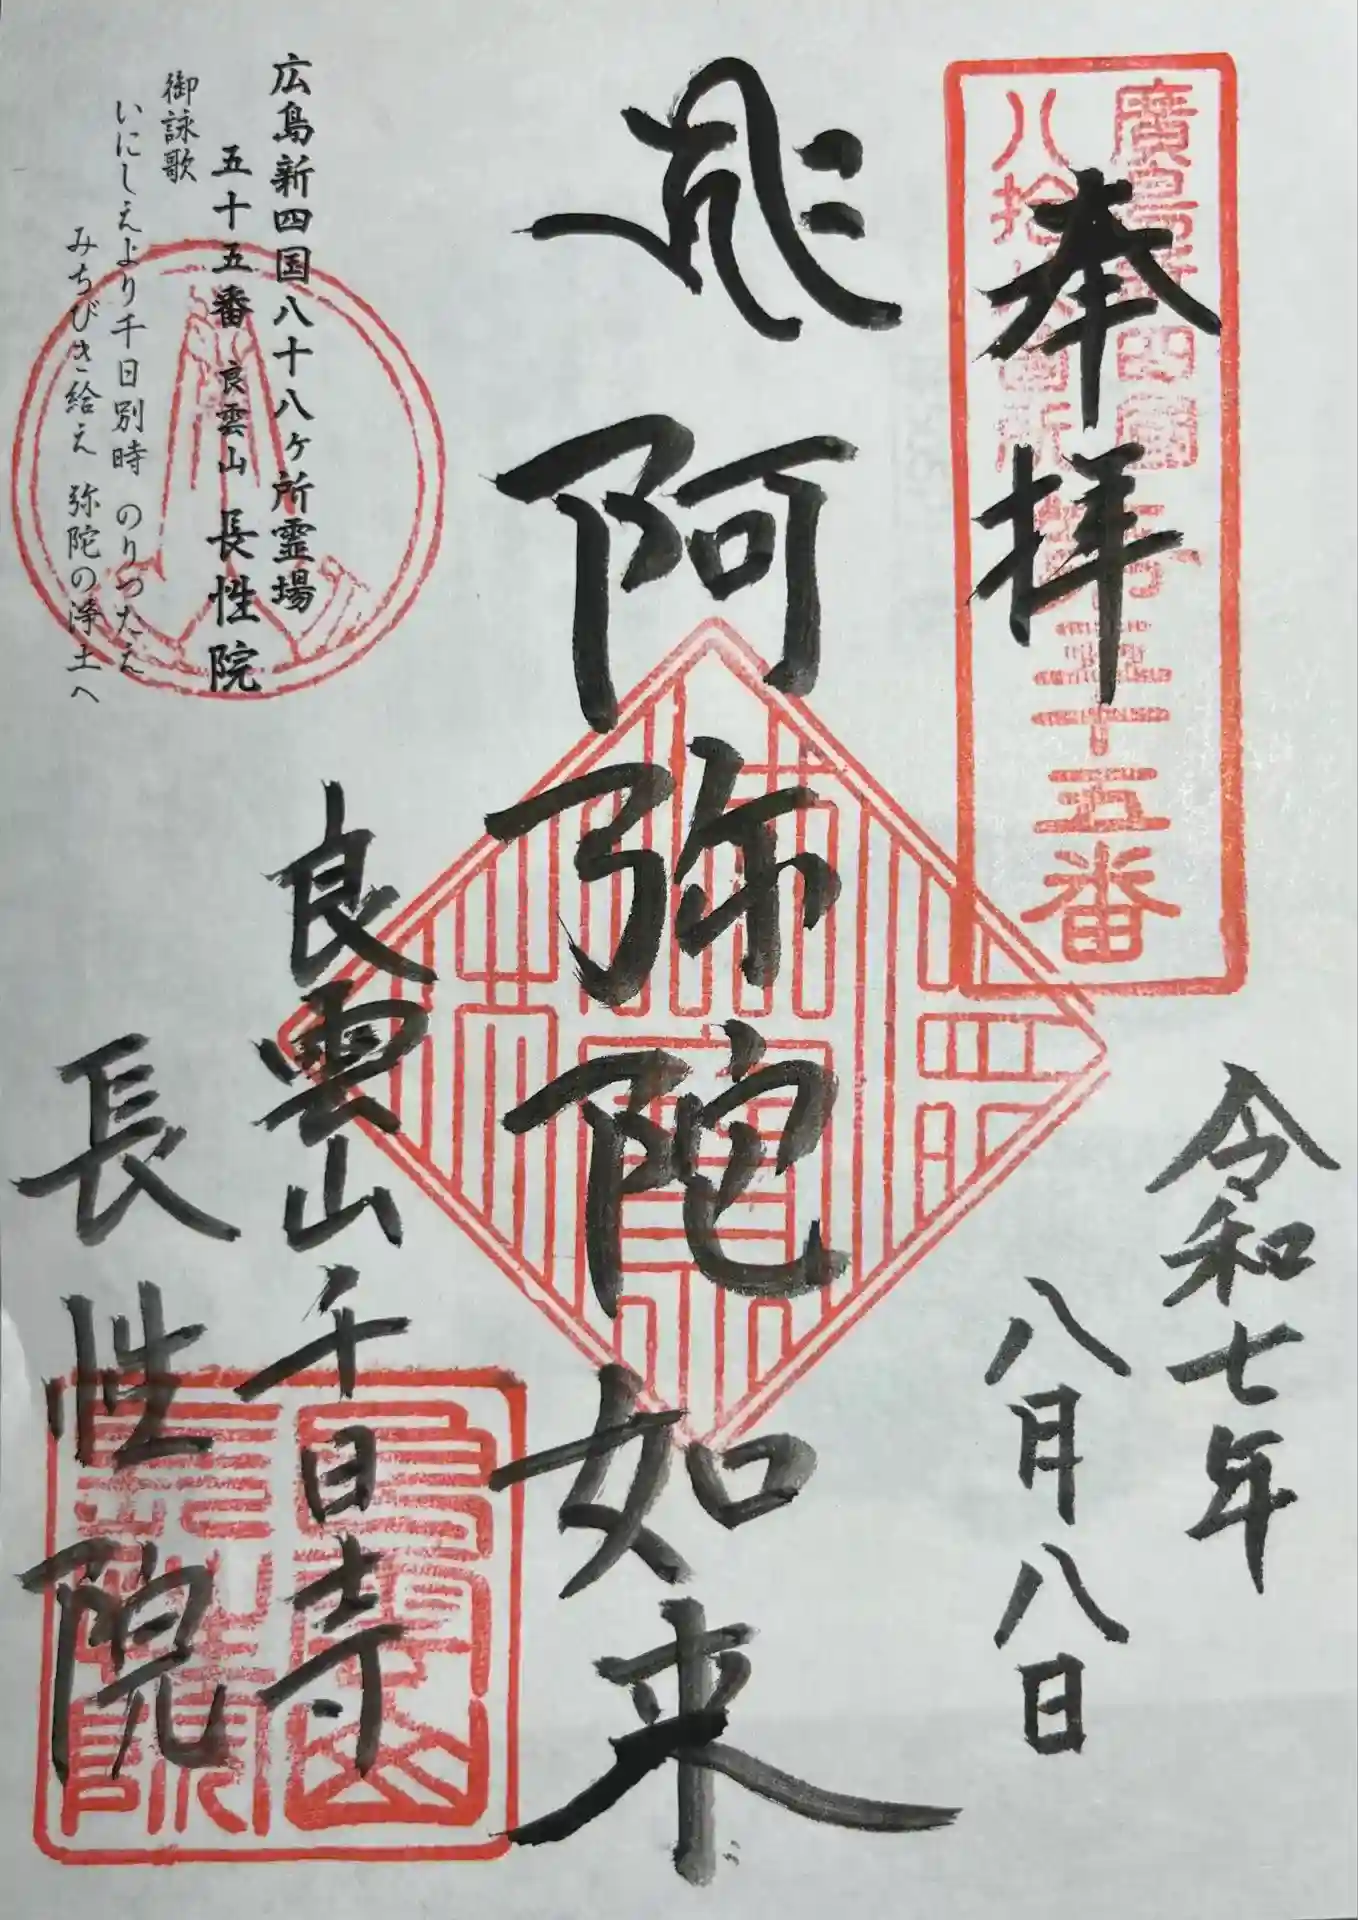 奉拝
廣島新四國
八拾八ヶ所
第五十五番
令和七年
八月八日
阿弥陀如来
良雲山千日寺
長性院
広島新四国八十八ヶ所霊場
五十五番 良雲山 長性院
御詠歌
いにしえより千日別時 のりつたえ
みちびき給え 弥陀の浄土へ